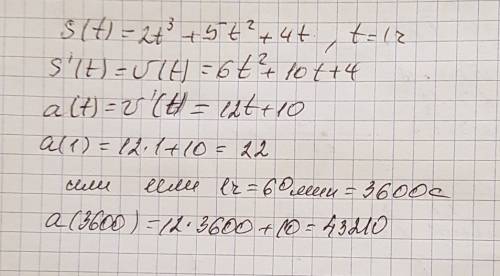 S(t)=2t³+5t²+4t, t=1ч
S'(t)=v(t)=6t²+10t+4
a(t)=v'(t)=12t+10
a(1)=12·1+10=22
или если 1ч=60мин=3600с
a(3600)=12·3600+10=43210